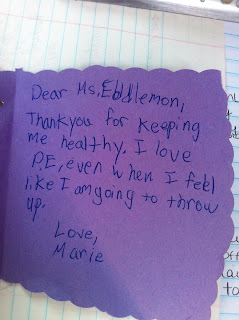 Dear Ms. Eddlemon,
Thankyou for keeping
me healthy. I love
PE, even when I feel
like I am going to throw
up.
Love,
Marie